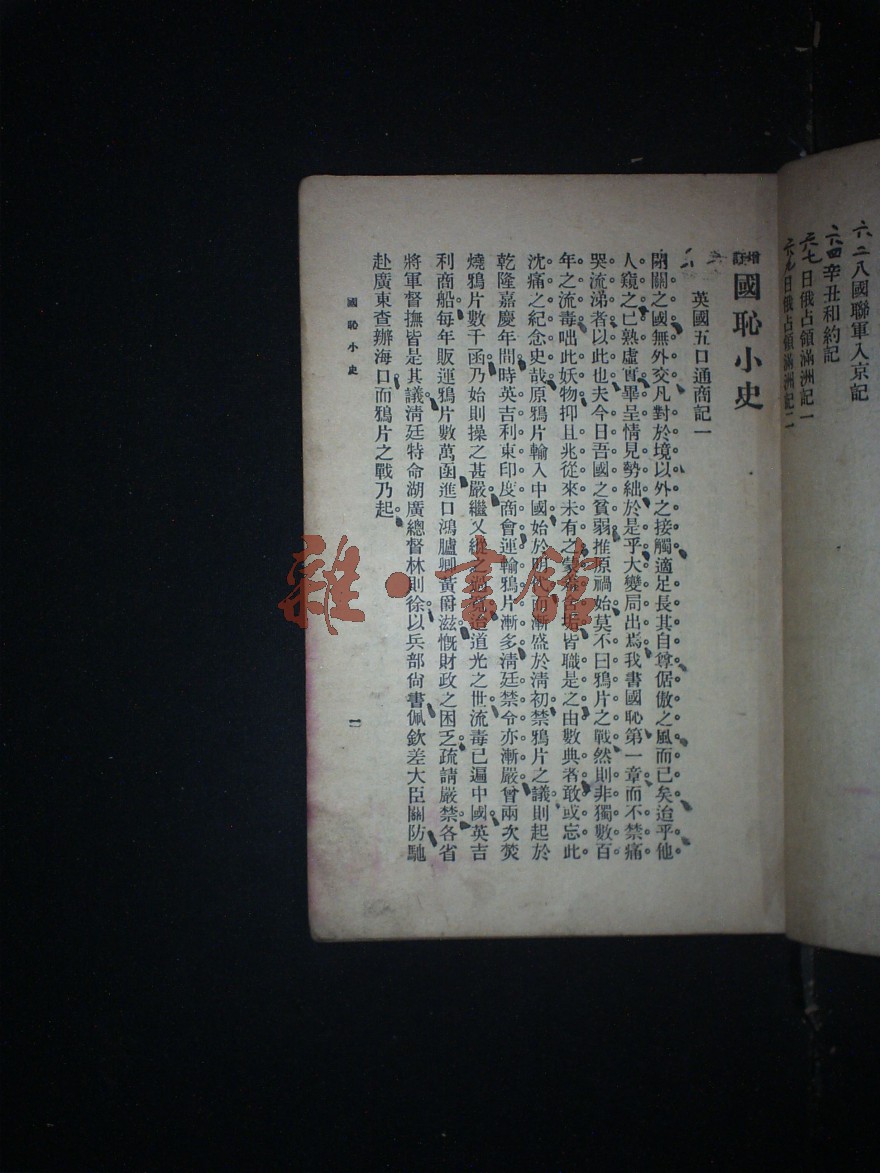 六二八國聯軍入京記
六四辛丑和約記
六七日俄占領滿洲記一
六九日俄占領滿洲記二
增註
國恥小史
英國五口通商記一
閉關之國無外交凡對於境以外之接觸適足長其自尊倨傲之風而已矣迨乎他
人窺之已熟虛實畢呈情見勢絀於是乎大變局出焉我書國恥第一章而不禁痛
哭流涕者以此也夫今日吾國之貧弱推原禍始莫不曰鴉片之戰然則非獨數百
年之流毒咄此妖物抑且兆從來未有之 皆職是之由數典者敢或忘此
沈痛之紀念史哉原鴉片輸入中國始於明代而漸盛於清初禁鴉片之議則起於
乾隆嘉慶年間時英吉利東印度商會運輸鴉片漸多清廷禁令亦漸嚴曾兩次焚
燒鴉片數千函乃始則操之甚嚴繼又縱之過 迨道光之世流毒已遍中國英吉
利商船每年販運鴉片數萬函進口鴻臚卿黃爵滋慨財政之困乏疏請嚴禁各省
將軍督撫皆是其議清廷特命湖廣總督林則徐以兵部尚書佩欽差大臣關防馳
赴廣東查辦海口而鴉片之戰乃起
國恥小史
一
雜·書館